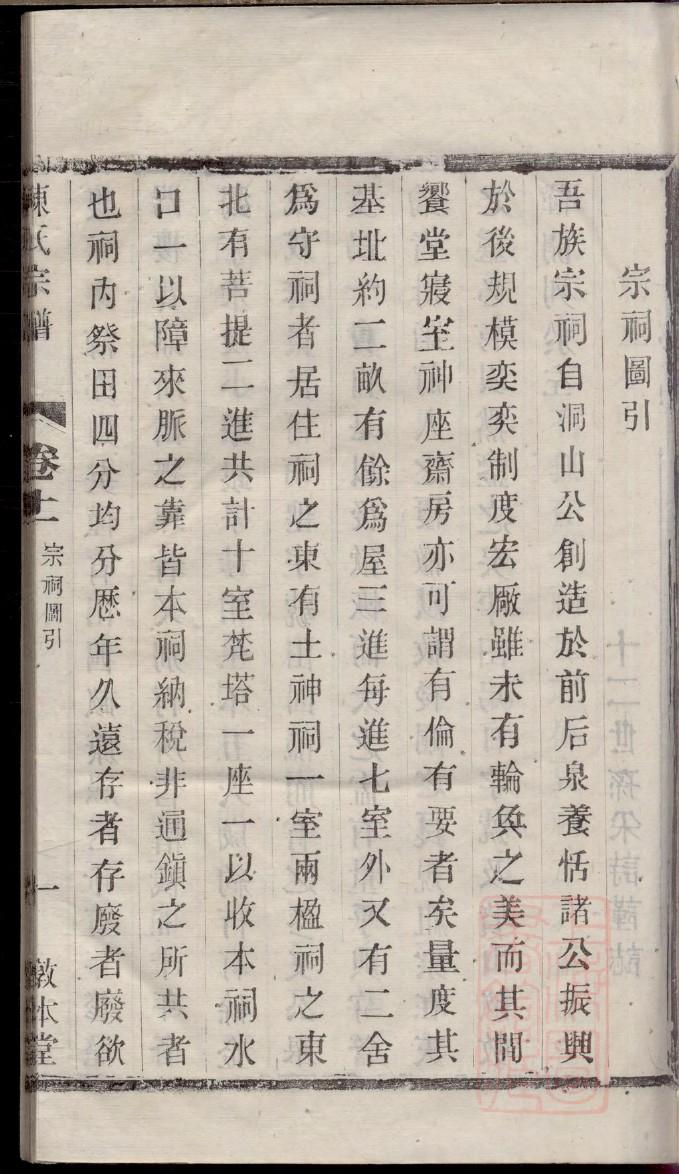 宗祠圖引
吾族宗祠自洞山公創造於前后泉養恬諸公振興
於後規模奕奕制度宏厰雖未有輪奐之美而其間
饗堂寢室神座齋房亦可謂有倫有要者矣量度其
基址約二畝有餘爲屋三進每進七室外又有二舍
爲守祠者居住祠之東有土神祠一室兩楹祠之東
北有菩提二進共計十室梵塔一座一以收本祠水
口一以障來脈之靠皆本祠納稅非通鎭之所共者
也祠內祭田四分均分歷年久遠存者存廢者廢欲
陳氏宗譜
卷十一
宗祠圖引
一
敦本堂